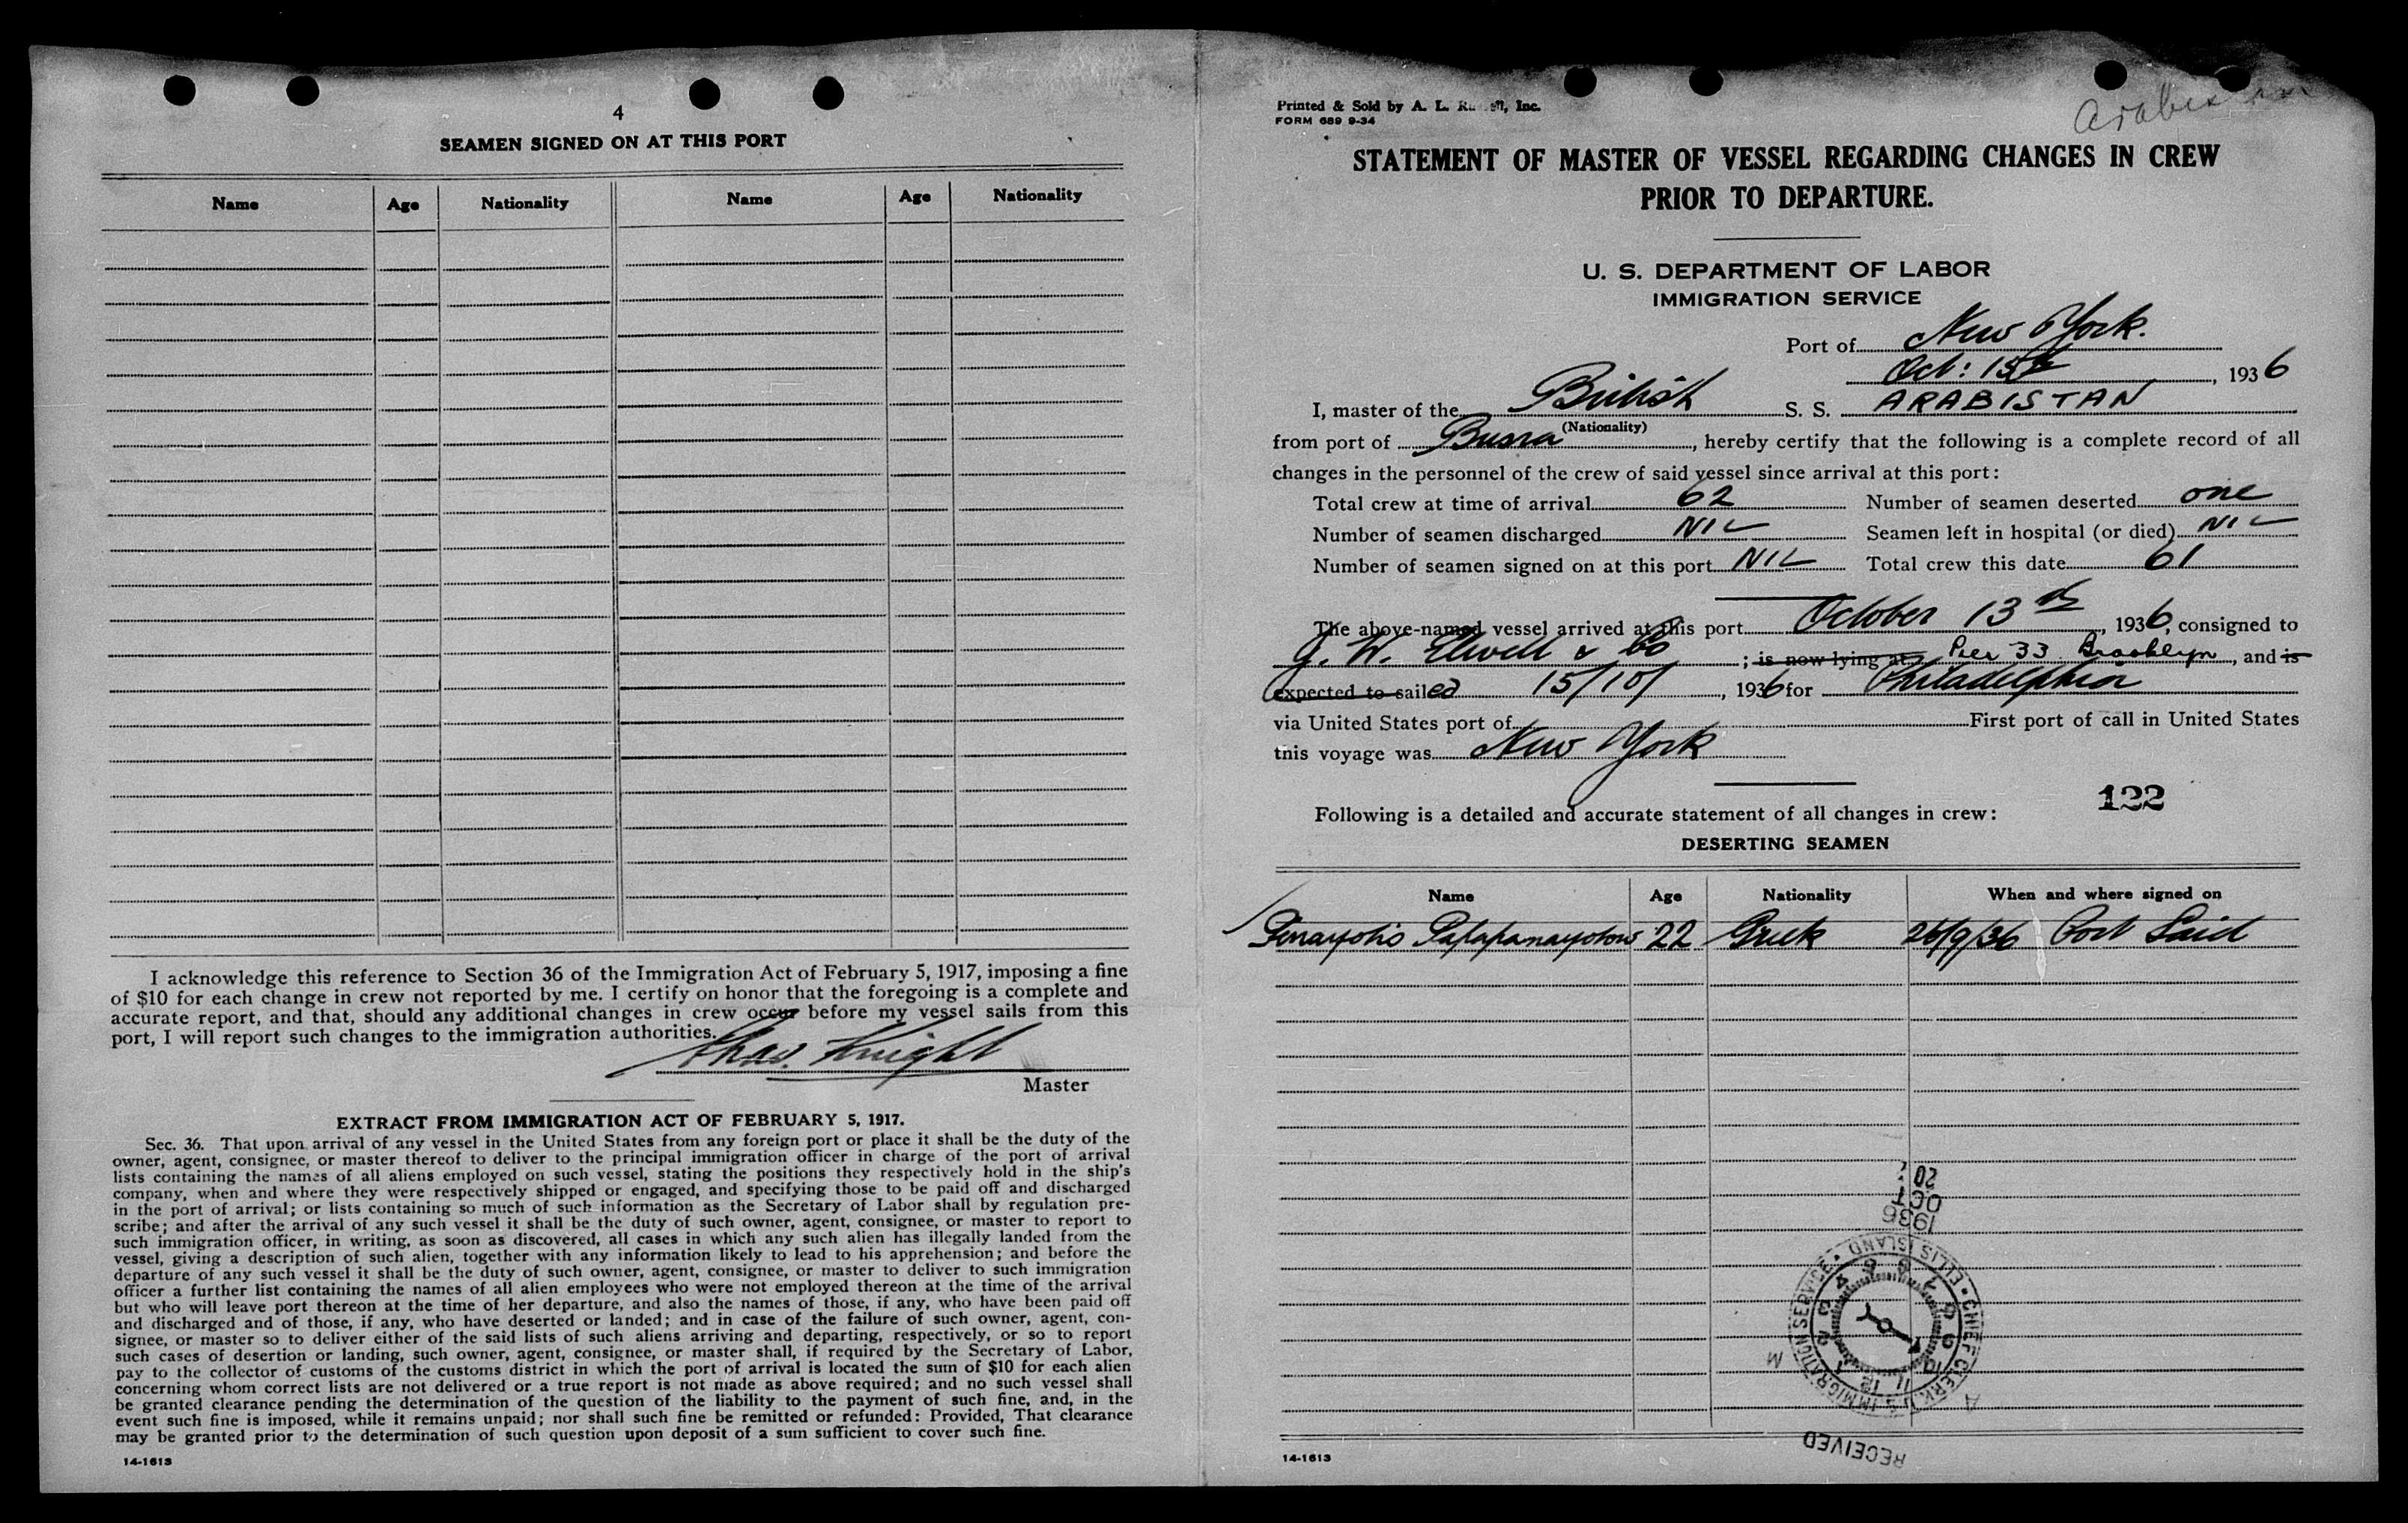 4
SEAMEN SIGNED ON AT THIS PORT
Name Age Nationality Name Age Nationality
I acknowledge this reference to Section 36 of the Immigration Act of February 5, 1917, imposing a fine
of $10 for each change in crew not reported by me. I certify on honor that the foregoing is a complete and
accurate report, and that, should any additional changes in crew occur before my vessel sails from this
port, I will report such changes to the immigration authorities.
Chas. Knight
Master
EXTRACT FROM IMMIGRATION ACT OF FEBRUARY 5, 1917.
Sec. 36. That upon arrival of any vessel in the United States from any foreign port or place it shall be the duty of the
owner, agent, consignee, or master thereof to deliver to the principal immigration officer in charge of the port of arrival
lists containing the names of all aliens employed on such vessel, stating the positions they respectively hold in the ship's
company, when and where they were respectively shipped or engaged, and specifying those to be paid off and discharged
in the port of arrival; or lists containing so much of such information as the Secretary of Labor shall by regulation pre-
scribe; and after the arrival of any such vessel it shall be the duty of such owner, agent, consignee, or master to report to
such immigration officer, in writing, as soon as discovered, all cases in which any such alien has illegally landed from the
vessel, giving a description of such alien, together with any information likely to lead to his apprehension; and before the
departure of any such vessel it shall be the duty of such owner, agent, consignee, or master to deliver to such immigration
officer a further list containing the names of all alien employees who were not employed thereon at the time of the arrival
but who will leave port thereon at the time of her departure, and also the names of those, if any, who have been paid off
and discharged and of those, if any, who have deserted or landed; and in case of the failure of such owner, agent, con-
signee, or master so to deliver either of the said lists of such aliens arriving and departing, respectively, or so to report
such cases of desertion or landing, such owner, agent, consignee, or master shall, if required by the Secretary of Labor,
pay to the collector of customs of the customs district in which the port of arrival is located the sum of $10 for each alien
concerning whom correct lists are not delivered or a true report is not made as above required; and no such vessel shall
be granted clearance pending the determination of the question of the liability to the payment of such fine, and, in the
event such fine is imposed, while it remains unpaid; nor shall such fine be remitted or refunded: Provided, That clearance
may be granted prior to the determination of such question upon deposit of a sum sufficient to cover such fine.
14-1613
Printed & Sold by A. L. Inc.
FORM 689 9-34
Arabistan
STATEMENT OF MASTER OF VESSEL REGARDING CHANGES IN CREW
PRIOR TO DEPARTURE.
U. S. DEPARTMENT OF LABOR
IMMIGRATION SERVICE
Port of New York.
Oct: 15th, 1936
I, master of the British S. S. ARABISTAN
(Nationality)
from port of Busra, hereby certify that the following is a complete record of all
changes in the personnel of the crew of said vessel since arrival at this port:
Total crew at time of arrival 62 Number of seamen deserted one
Number of seamen discharged NIL Seamen left in hospital (or died) NIL
Number of seamen signed on at this port NIL Total crew this date 61
The above-named vessel arrived at this port October 13th, 1936, consigned to
J. W. Elwell & Co; is now lying at Pier 33 Brooklyn, and is
expected to sailed 15/10/, 1936 for Philadelphia
via United States port of First port of call in United States
this voyage was New York
122
Following is a detailed and accurate statement of all changes in crew:
DESERTING SEAMEN
Name Age Nationality When and where signed on
22 Greek 26/9/36 Port Said
20
OCT
1936
U.S. IMMIGRATION SERVICE • ELLIS ISLAND • CHIEF CLERK
1 2 3 4 5 6 7 8 9 10 11 12
M A
RECEIVED
14-1613